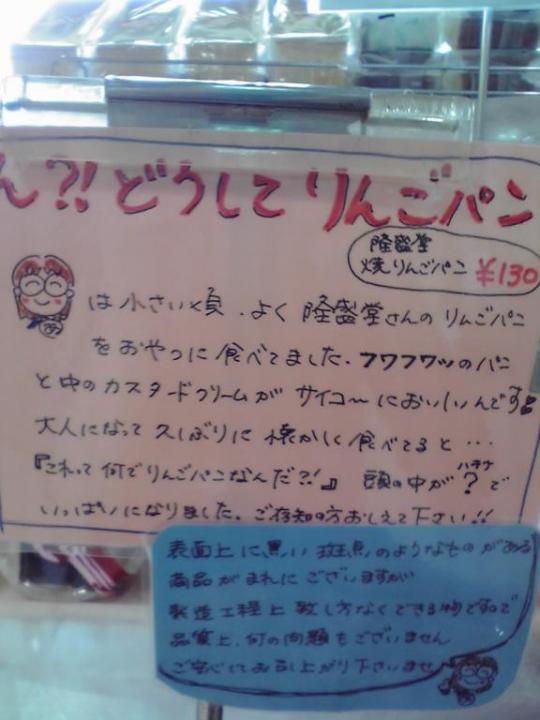 ん?! どうして りんごパン
隆盛堂
焼りんごパン ¥130
は小さい頃、よく隆盛堂さんのりんごパン
をおやつに食べてました。フワフワッのパン
と中のカスタードクリームがサイコ〜においしいんです
大人になって久しぶりに懐かしく食べてると…
『これって何でりんごパンなんだ?!』 頭の中が?(ハテナ)で
いっぱいになりました。ご存知の方おしえて下さい!!
表面上に黒い斑点のようなものがある
商品がまれにございますが
製造工程上致し方なくできる物ですので
品質上、何の問題もございません
ご安心してお召し上がり下さいませ